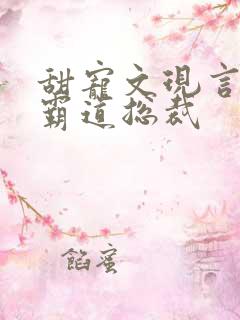 甜寵文現言
霸道総裁
餡蜜